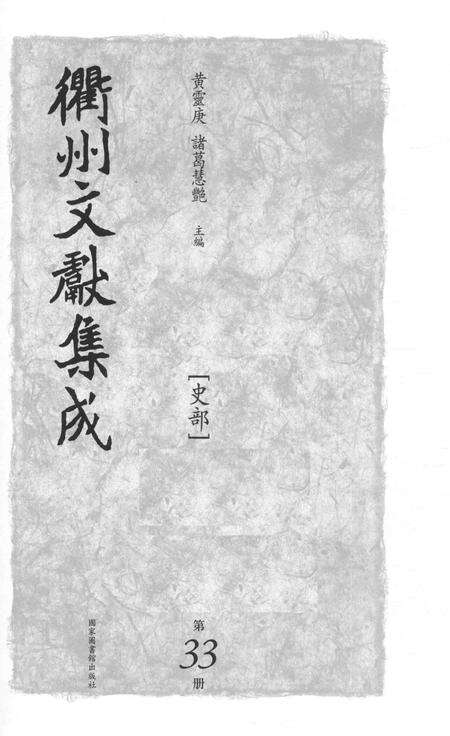 黃靈庚 諸葛慧艷 主編
衢州文獻集成
[史部]
第33册
國家圖書館出版社